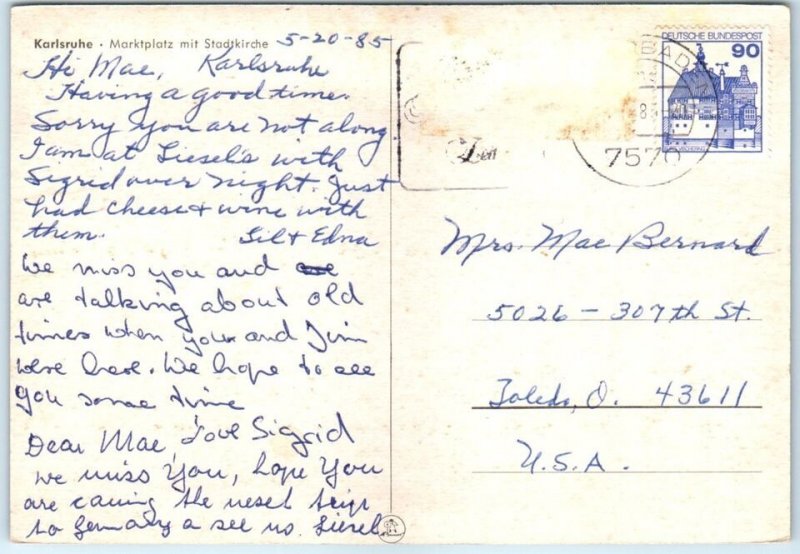 Karlsruhe · Marktplatz mit Stadtkirche
5-20-85
Hi Mae, Karlsruhe
Having a good time.
Sorry you are not along
I am at Liesel's with
Sigrid over night. Just
had cheese & wine with
them. Sil & Edna
We miss you and
are talking about old
times when you and Jim
were here. We hope to see
you some time
Love Sigrid
Dear Mae,
we miss You, hope You
are caming the next trip
to Germany a see us. Liesel
DEUTSCHE BUNDESPOST
90
BAD
7570
Mrs. Mae Bernard
5026 - 307th St.
Toledo, O. 43611
U.S.A.